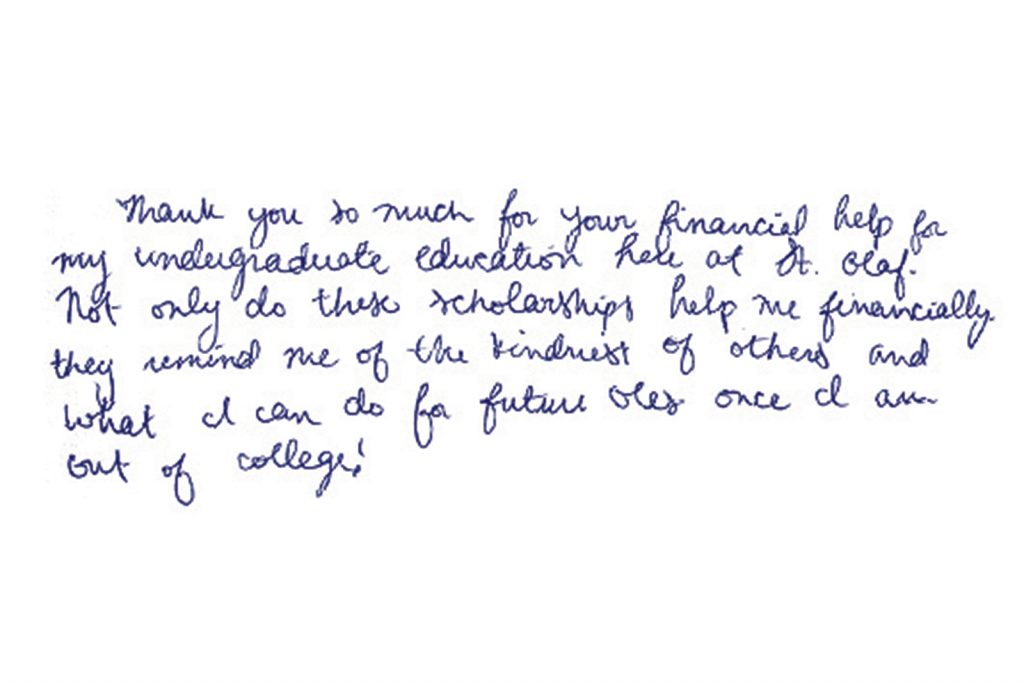 Thank you so much for your financial help for
my undergraduate education here at St. Olaf.
Not only do these scholarships help me financially,
they remind me of the kindness of others and
what I can do for future Oles once I am
out of college!